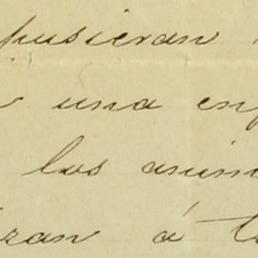 pusieran
una enf
los anim
eran á t